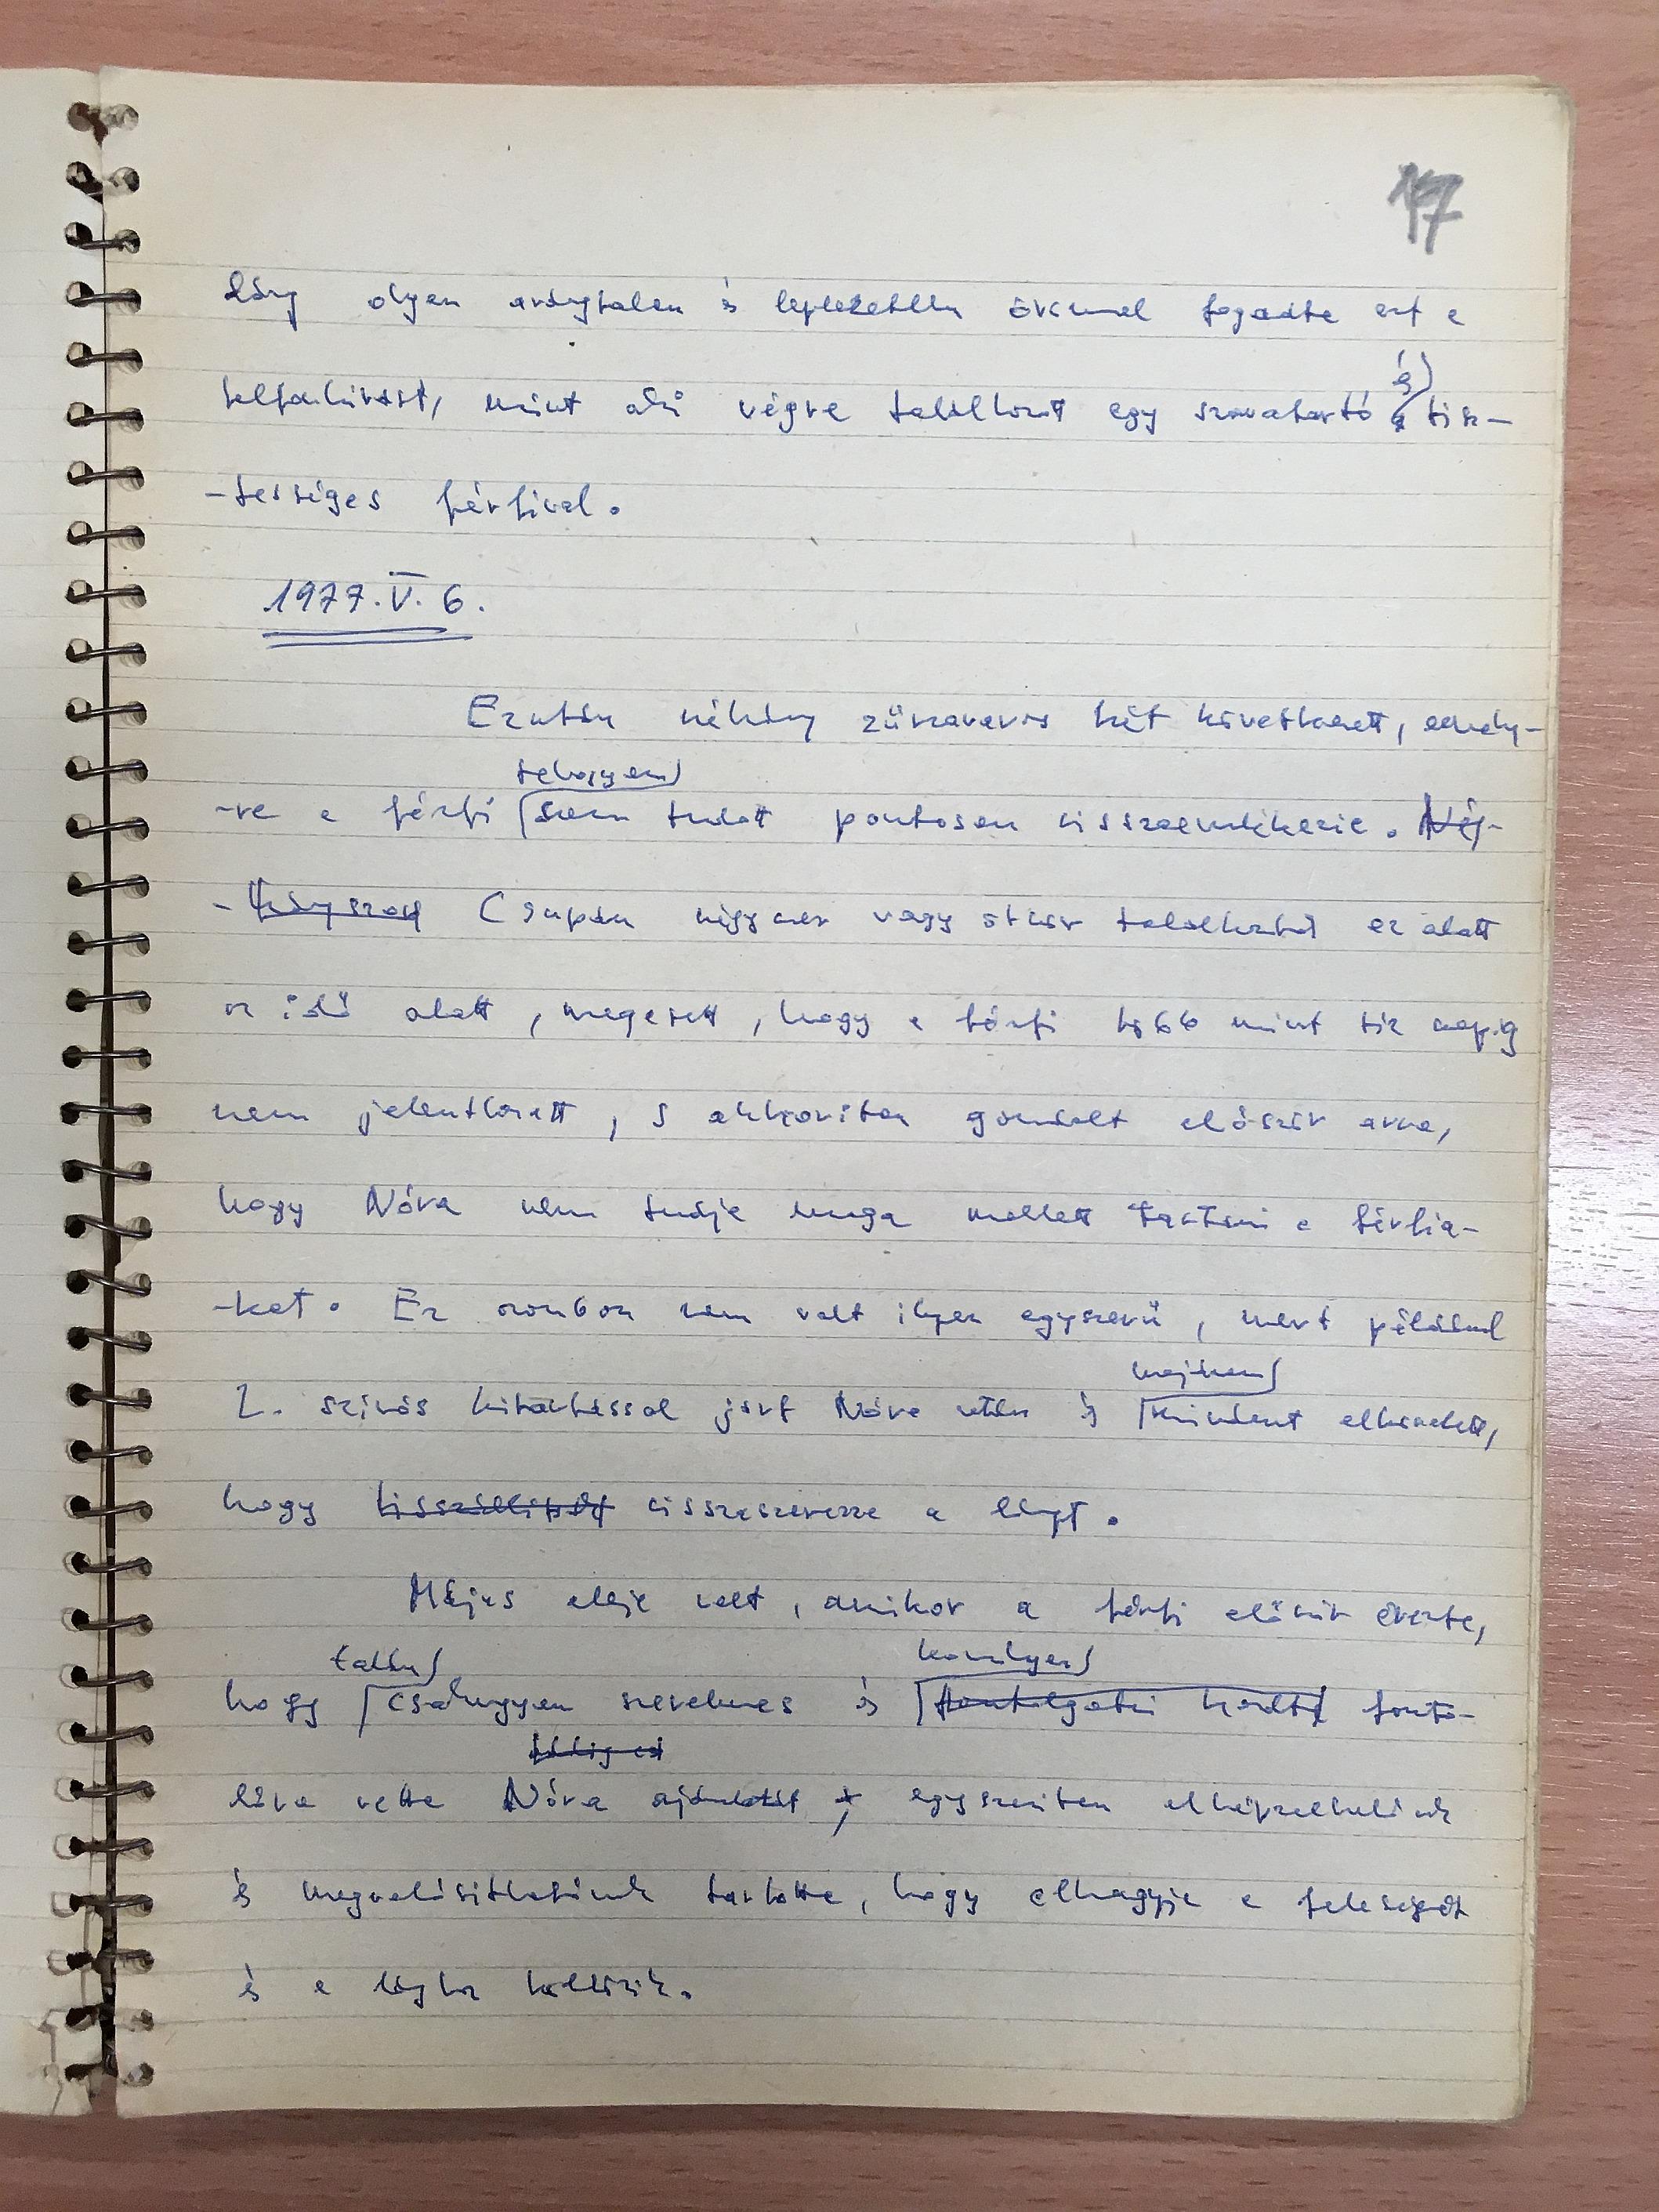 17
lány olyan aránytalan és leplezetlen örömmel fogadta ezt a
felfordulást, mint aki végre találkozott egy szavatartó és tisz-
-tességes férfival.
1977. V. 6.
Ezután néhány zűrzavaros hét következett, amely-
sehogyan
-re a férfi sem tudott pontosan visszaemlékezni. Néj-
-hányszor Csupán négyszer vagy ötször találkozott ez alatt
az idő alatt, megesett, hogy a férfi több mint tíz napig
nem jelentkezett, s akkoriban gondolt először arra,
hogy Nóra nem tudja maga mellett tartani a férfia-
-kat. Ez azonban nem volt ilyen egyszerű, mert például
majdnem
Z. szívós kitartással járt Nóra után és mindent elkövetett,
hogy visszaszerezze a lányt.
Május eleje volt, amikor a férfi először érezte,
talán komolyan
hogy csakugyan szerelmes és fontolgatni kezdte fonto-
lóra vette Nóra ajánlatát, egyszeriben elképzelhetőnek
és megvalósíthatónak tartotta, hogy elhagyja a feleségét
és a lányhoz költözik.